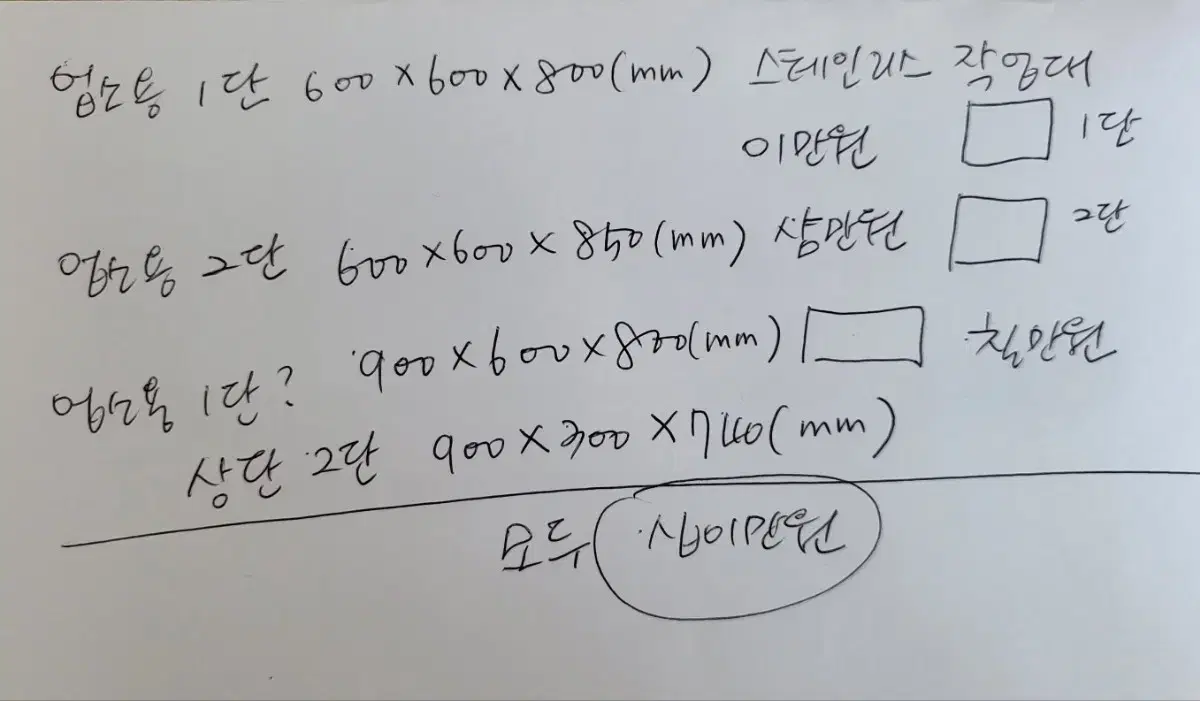 업소용 1단 600×600×800(mm) 스테인리스 작업대
이만원 1단
업소용 2단 600×600×850(mm) 삼만원 2단
업소용 1단? 900×600×800(mm) 칠만원
상단 2단 900×300×740(mm)
모두 십이만원